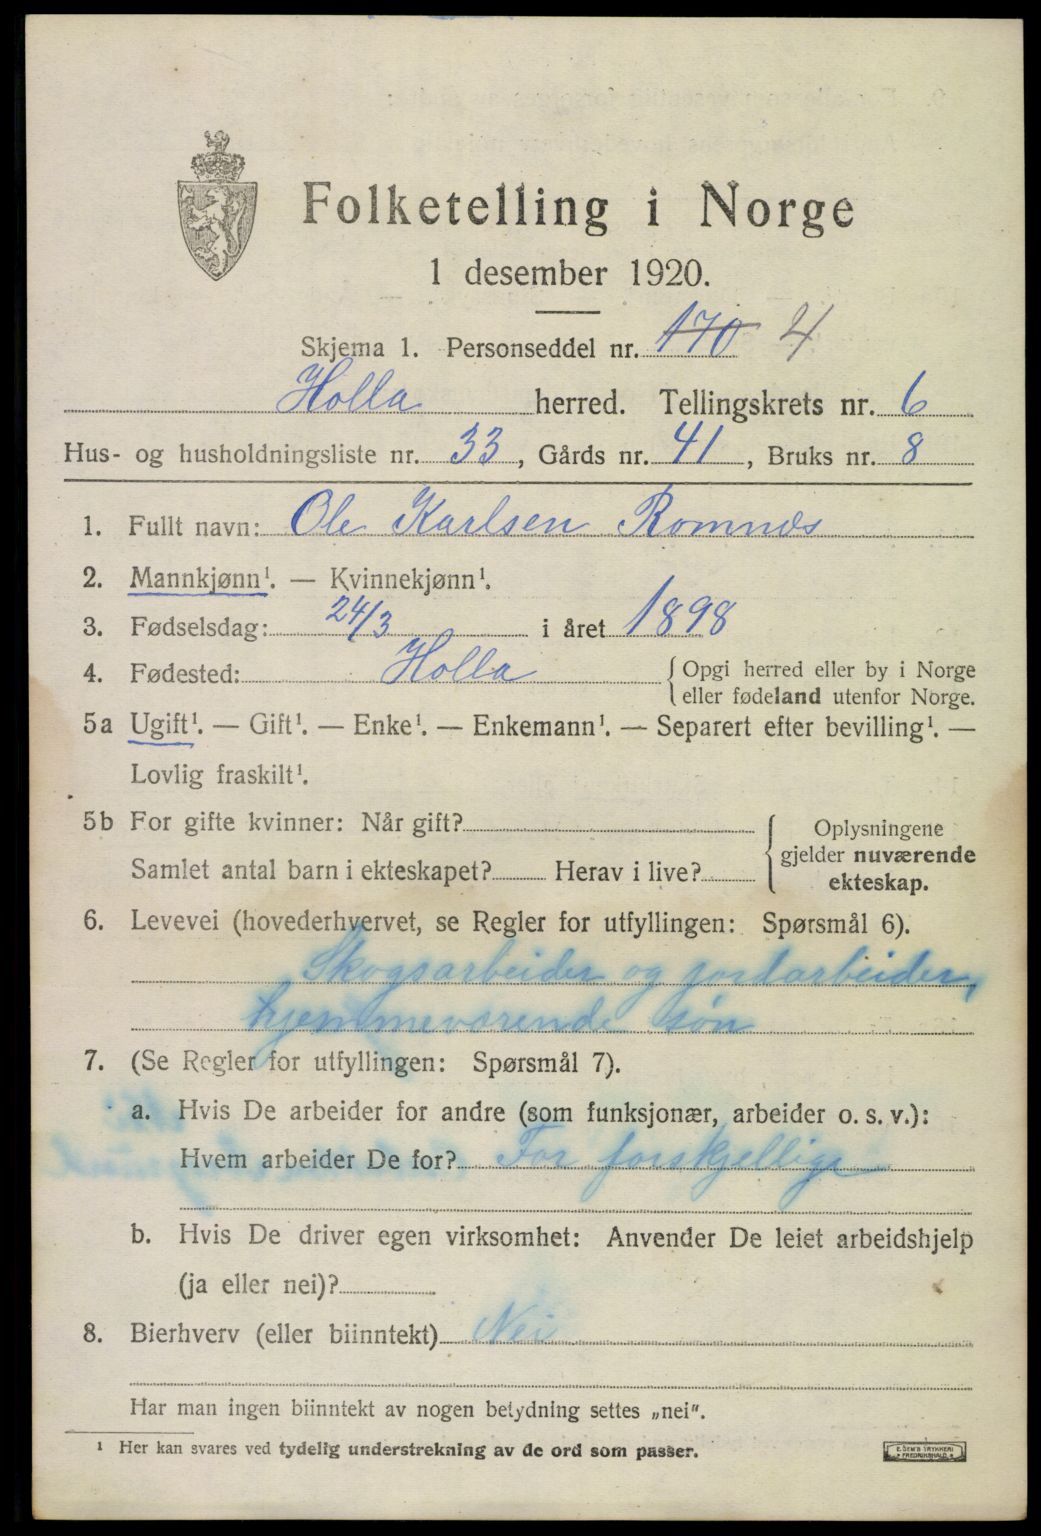 Folketelling i Norge
1 desember 1920.
Skjema 1. Personseddel nr. 170 4
Holla herred. Tellingskrets nr. 6
Hus- og husholdningsliste nr. 33, Gårds nr. 41, Bruks nr. 8
1. Fullt navn: Ole Karlsen Romnes
2. Mannkjønn¹. — Kvinnekjønn¹.
3. Fødselsdag: 24/3 i året 1898
4. Fødested: Holla { Opgi herred eller by i Norge
eller fødeland utenfor Norge.
5a Ugift¹. — Gift¹. — Enke¹. — Enkemann¹. — Separert efter bevilling¹. —
Lovlig fraskilt¹.
5b For gifte kvinner: Når gift? Oplysningene
gjelder nuværende
Samlet antal barn i ekteskapet? Herav i live? ekteskap.
6. Levevei (hovederhvervet, se Regler for utfyllingen: Spørsmål 6).
Skogsarbeider og jordarbeider,
hjemmeværende søn
7. (Se Regler for utfyllingen: Spørsmål 7).
a. Hvis De arbeider for andre (som funksjonær, arbeider o. s. v.):
Hvem arbeider De for? For forskjellige
b. Hvis De driver egen virksomhet: Anvender De leiet arbeidshjelp
(ja eller nei)?
8. Bierhverv (eller biinntekt) Nei
Har man ingen biinntekt av nogen betydning settes „nei".
¹ Her kan svares ved tydelig understrekning av de ord som passer.
E. SEM'S TRYKKERI
FREDRIKSHALD